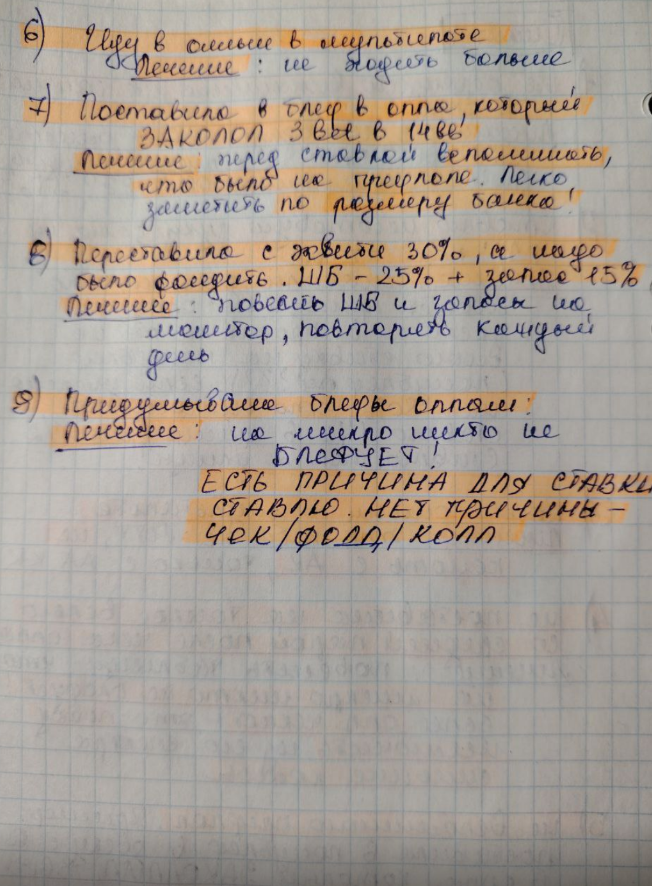 6) Иду в оллын в мультипоте
Лечение: не ходить больше
7) Поставила в блеф в оппа, который
ЗАКОЛОЛ 3 bet в 14 ВВ
Лечение: перед ставкой вспоминать,
что было на префлопе. Легко
заметить по размеру банка!
8) Переставила с эквити 30%, а надо
было фолдить. ШБ - 25% + запас 15%
Лечение: повесить ШБ и запасы на
монитор, повторять каждый
день
9) Придумывала блефы оппам:
Лечение: на микро никто не
БЛЕФУЕТ!
ЕСТЬ ПРИЧИНА ДЛЯ СТАВКИ
СТАВЛЮ. НЕТ ПРИЧИНЫ -
ЧЕК/ФОЛД/КОЛЛ